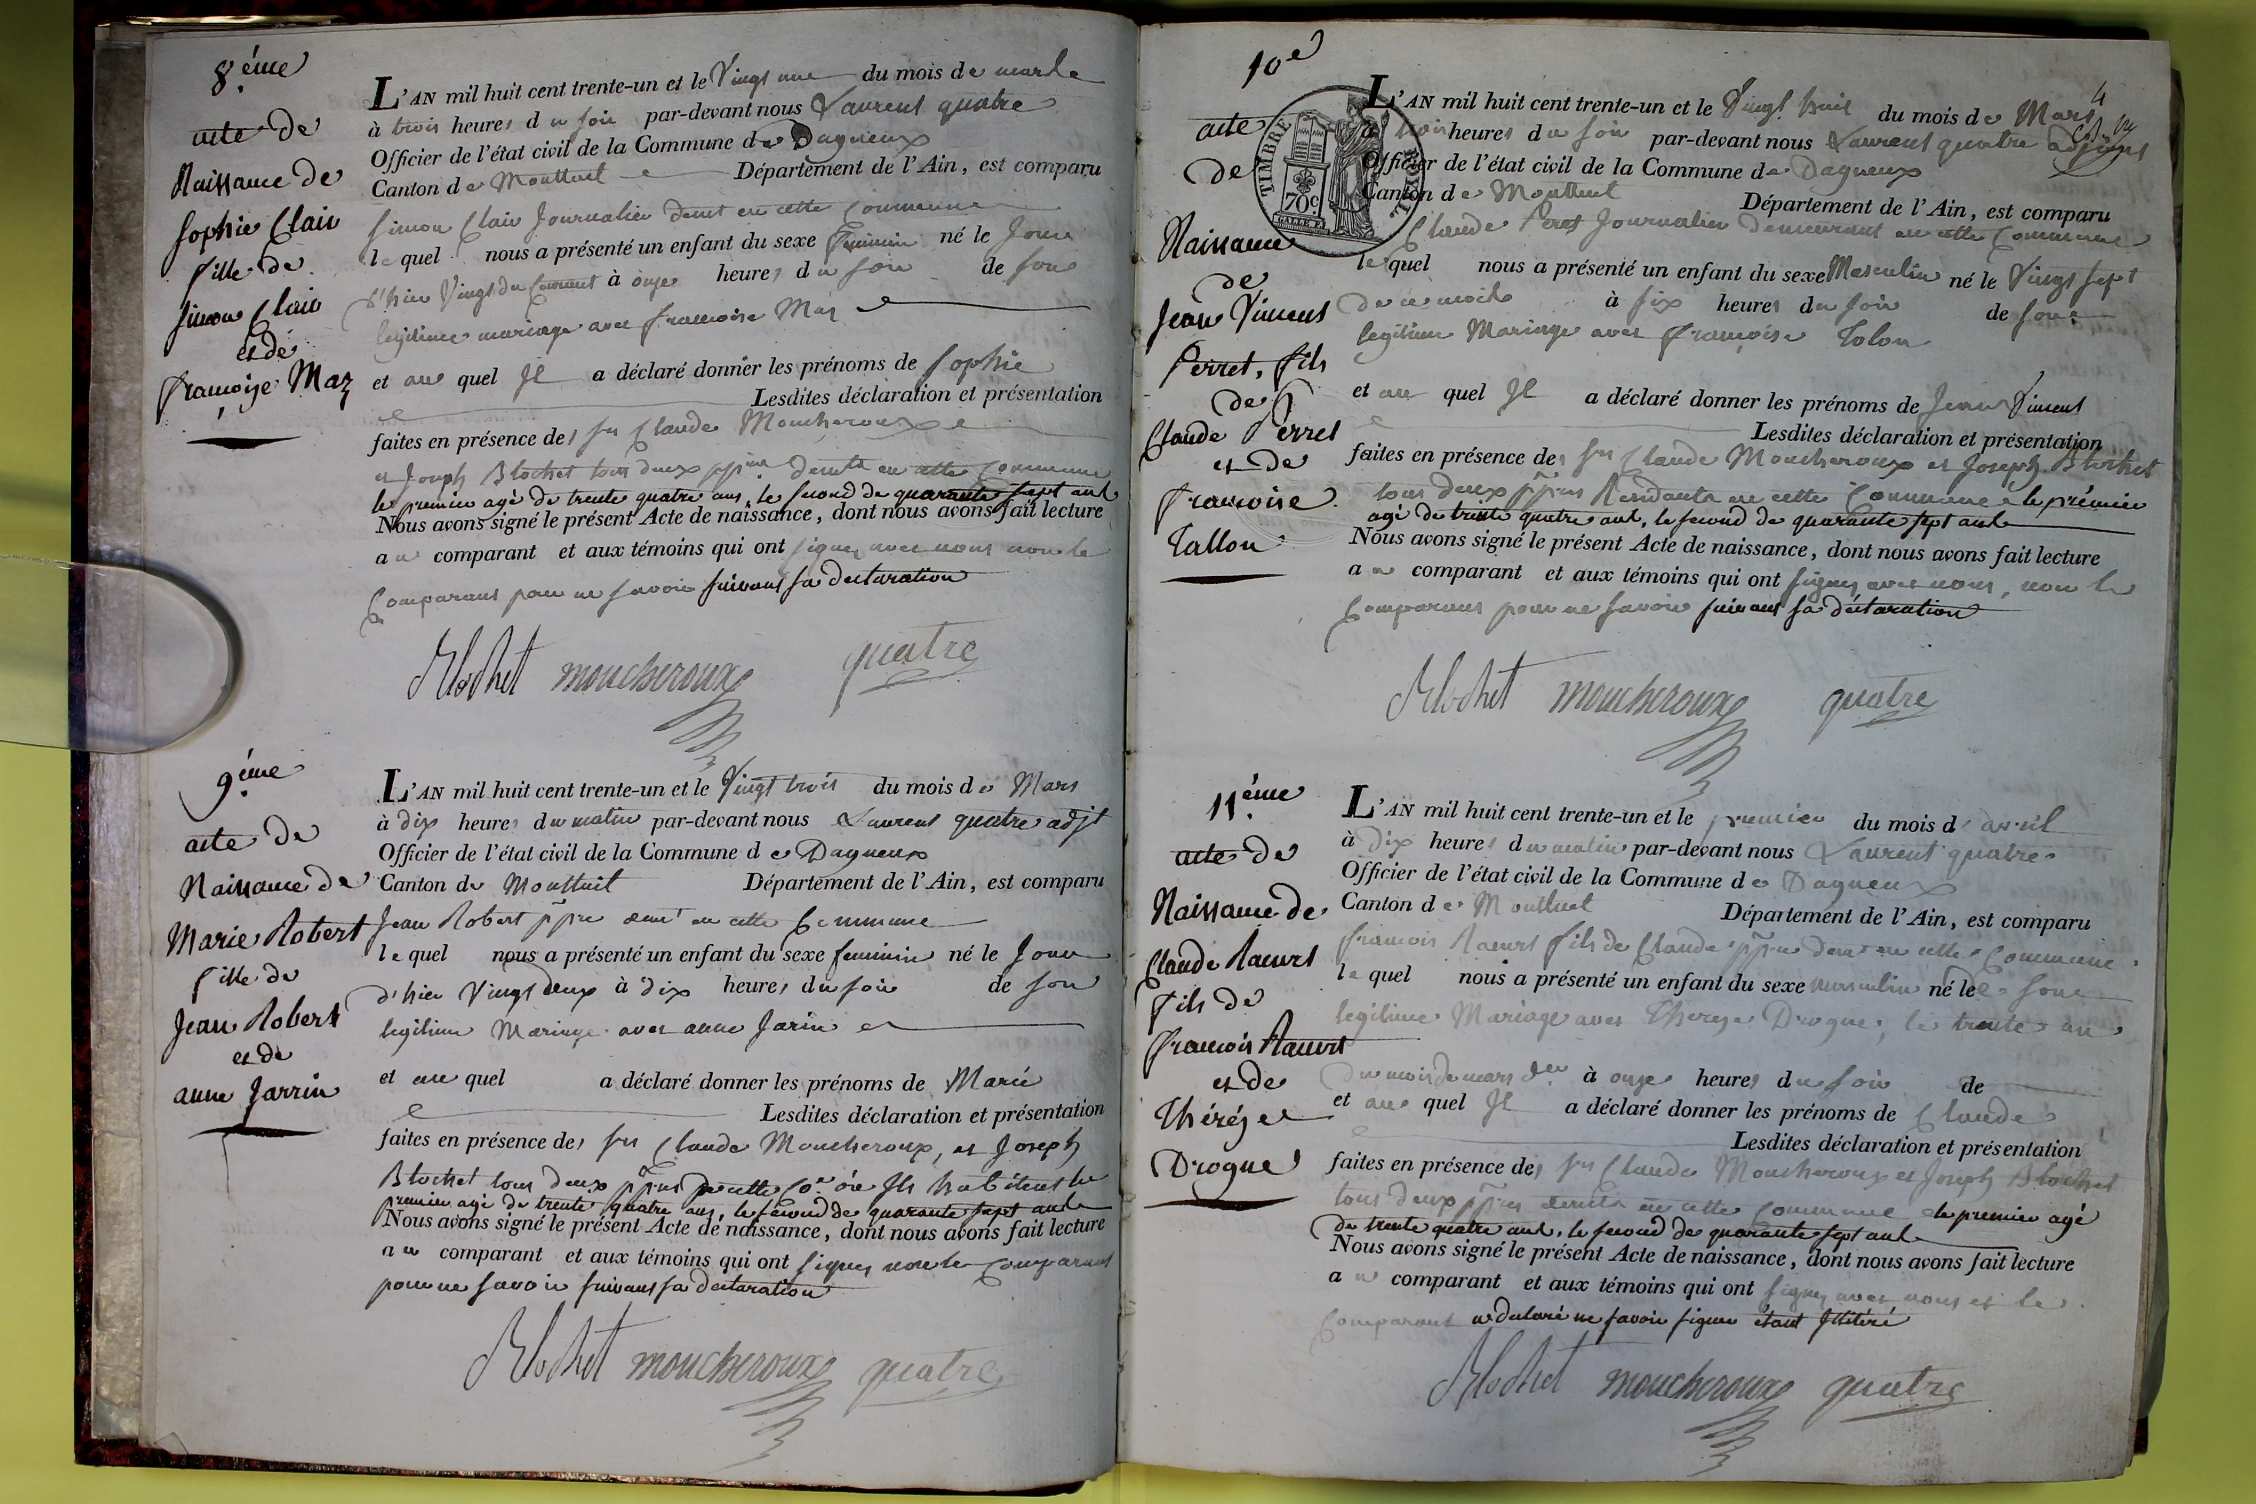 8.ème
acte de
Naissance de
Sophie Clair
fille de
Simon Clair
et de
françoise Maz
L'AN mil huit cent trente-un et le Vingt une du mois de marde
à trois heures du soir par-devant nous Laurent quatre
Officier de l'état civil de la Commune de Dagneux
Canton de Montluel Département de l'Ain, est comparu
Simon Clair Journalier demt en cette Commune
le quel nous a présenté un enfant du sexe feminin né le Jour
d'hier Vingt du Courant à onze heures du soir de son
legitime mariage avec francoise Maz
et au quel Il a déclaré donner les prénoms de Sophie
Lesdites déclaration et présentation
faites en présence des srs Claude Moucheroux
et Joseph Blochet tous deux ppres demts en cette Commune
le premier agé de trente quatre ans, le second de quarante sept ans
Nous avons signé le présent Acte de naissance, dont nous avons fait lecture
au comparant et aux témoins qui ont signez avec nous non le
Comparant pour ne savoir suivant sa declaration
Blochet moucheroux quatre
9.ème
acte de
Naissance de
Marie Robert
fille de
Jean Robert
et de
anne Jarrin
L'AN mil huit cent trente-un et le Vingt trois du mois de Mars
à dix heures du matin par-devant nous Laurent quatre adjt
Officier de l'état civil de la Commune de Dagneux
Canton de Montluil Département de l'Ain, est comparu
Jean Robert ppre demt en cette Commune
le quel nous a présenté un enfant du sexe feminin né le Jour
d'hier Vingt deux à dix heures du soir de son
legitime Mariage avec anne Jarin
et au quel a déclaré donner les prénoms de Marie
Lesdites déclaration et présentation
faites en présence des srs Claude Moucheroux, et Joseph
Blochet tous deux ppres de cette Cone où Ils habitent le
premier agé de trente quatre ans, le second de quarante sept ans
Nous avons signé le présent Acte de naissance, dont nous avons fait lecture
au comparant et aux témoins qui ont signez non le Comparant
pour ne savoir suivant sa declaration
Blochet moucheroux quatre
10e
acte
de
Naissance
de
Jean Vincent
Perret, fils
de
Claude Perret
et de
francoise
Tallon
TIMBRE ROYAL
70c
4
L'AN mil huit cent trente-un et le Vingt huit du mois de Mars
à trois heures du soir par-devant nous Laurent quatre adjoint
Officier de l'état civil de la Commune de Dagneux
Canton de Montluel Département de l'Ain, est comparu
Claude Peret Journalier demeurant en cette Commune
le quel nous a présenté un enfant du sexe Masculin né le Vingt sept
de ce mois à six heures du soir de son
legitime Mariage avec françoise Tolon
et au quel Il a déclaré donner les prénoms de Jean Vincent
Lesdites déclaration et présentation
faites en présence des srs Claude Moucheroux et Joseph Blochet
tous deux ppres Residants en cette Commune le prémier
agé de trente quatre ans, le second de quarante sept ans
Nous avons signé le présent Acte de naissance, dont nous avons fait lecture
au comparant et aux témoins qui ont signez avec nous, non le
Comparant pour ne savoir suivant sa déclaration
Blochet moucheroux quatre
11.ème
acte de
Naissance de
Claude Raeurt
fils de
francois Raeurt
et de
Thérèze
Drogue
L'AN mil huit cent trente-un et le premier du mois d'avril
à dix heures du matin par-devant nous Laurent quatre
Officier de l'état civil de la Commune de Dagneux
Canton de Montluel Département de l'Ain, est comparu
francois Raeurt fils de Claude ppre demt en cette Commune
le quel nous a présenté un enfant du sexe masculin né le de son
legitime Mariage avec Thereze Drogue, le trente un
du mois de mars der à onze heures du soir de
et au quel Il a déclaré donner les prénoms de Claude
Lesdites déclaration et présentation
faites en présence des srs Claude Moucheroux et Joseph Blochet
tous deux ppres demts en cette Commune le premier agé
de trente quatre ans, le second de quarante sept ans
Nous avons signé le présent Acte de naissance, dont nous avons fait lecture
au comparant et aux témoins qui ont signez avec nous et le
Comparant a declaré ne savoir signer étant Illitéré
Blochet moucheroux quatre